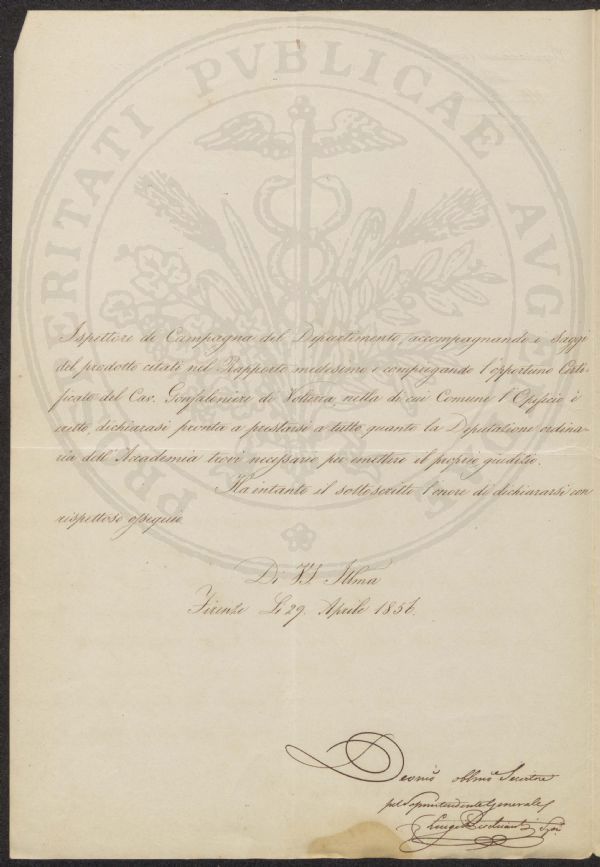 PROSPERITATI PVBLICAE AVGENDAE
Ispettore di Campagna del Dipartimento, accompagnando i Saggi
del prodotto citati nel Rapporto medesimo e compiegando l'opportuno Certi-
ficato del Cav. Gonfaloniere di Volterra, nella di cui Comune l'Opificio è
eretto, dichiarasi pronto a prestarsi a tutto quanto la Deputazione ordina-
ria dell'Accademia trovi necessario per emettere il proprio giudizio.
Ha intanto il sottoscritto l'onore di dichiararsi con
rispettoso ossequio
Di VS Illma
Firenze Li 29. Aprile 1856.
Devmo obblmo Servitore
pel Soprintendente Generale
Luigi